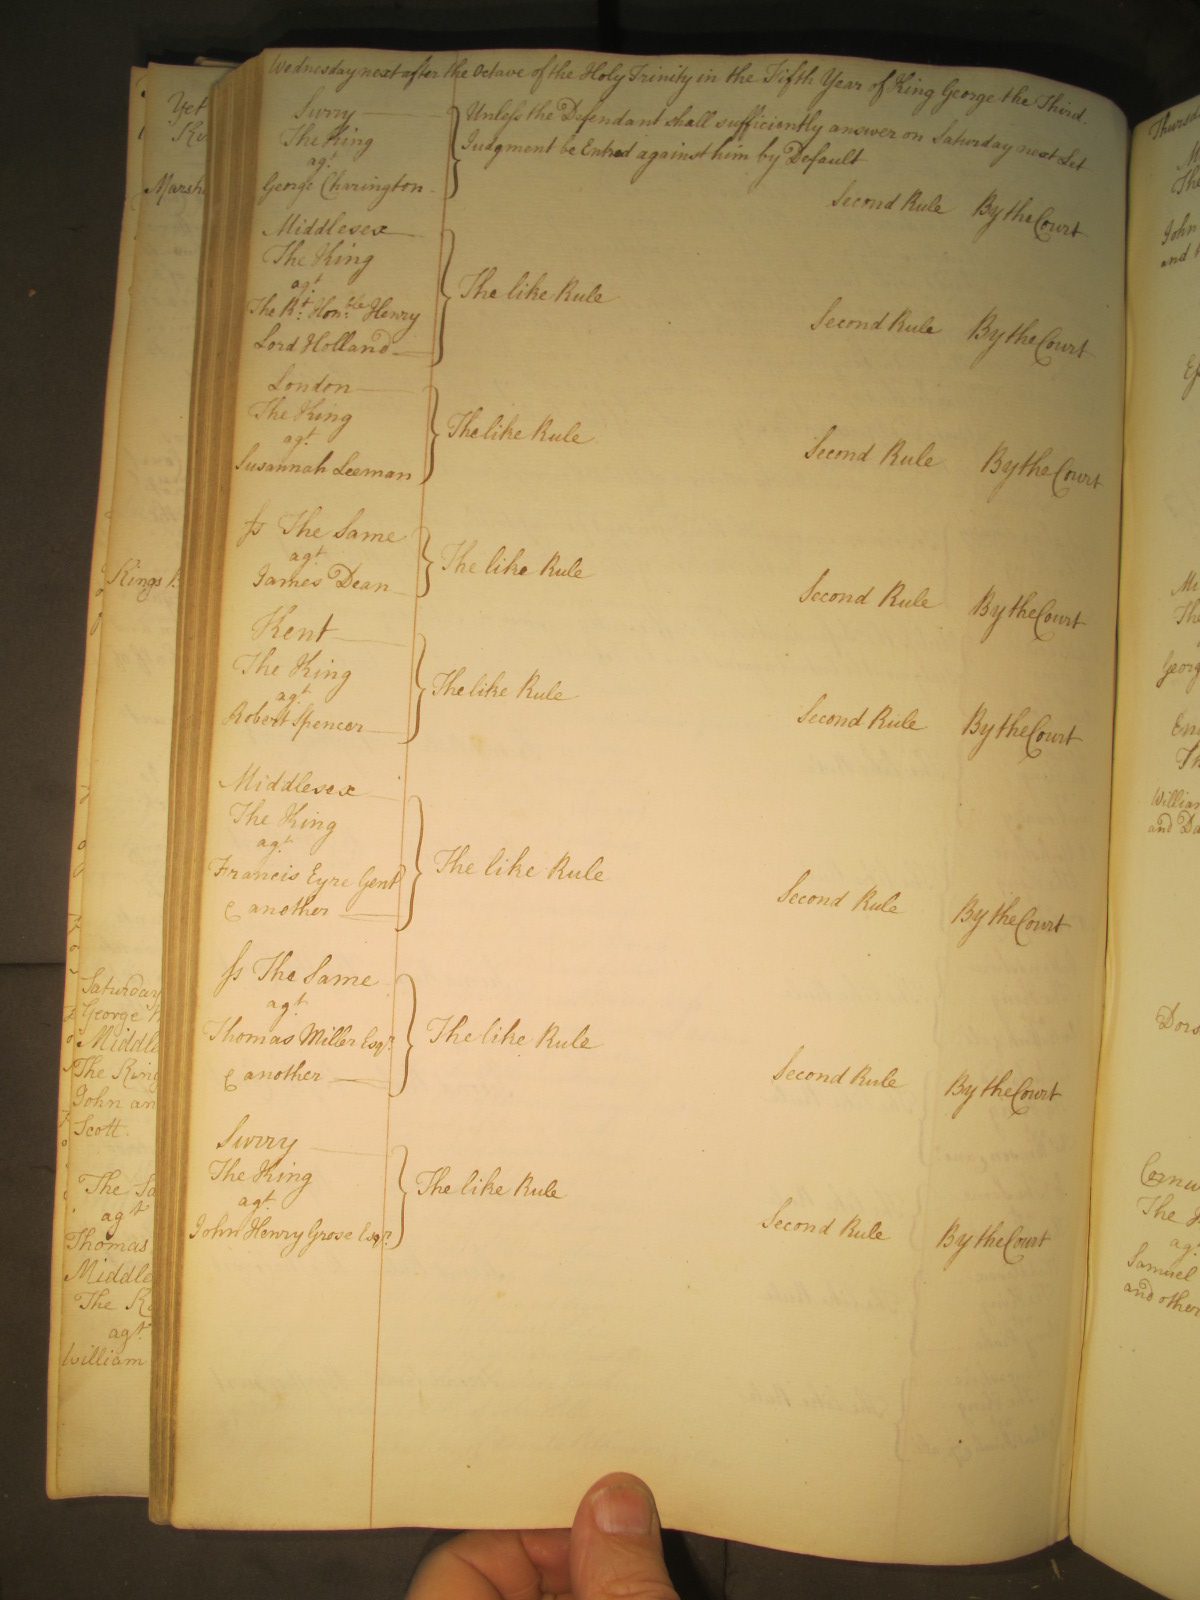 Wednesday next after the Octave of the Holy Trinity in the Fifth Year of King George the Third.
Surry
The King
agt.
George Chevington
Unless the Defendant shall sufficiently answer on Saturday next Let
Judgment be Entred against him by Default
Second Rule By the Court
Middlesex
The King
agt.
The Rt. Honble. Henry
Lord Holland
The like Rule
Second Rule By the Court
London
The King
agt.
Susannah Leeman
The like Rule
Second Rule By the Court
Ss The Same
agt
James Dean
The like Rule
Second Rule By the Court
Kent
The King
agt
Robert Spencer
The like Rule
Second Rule By the Court
Middlesex
The King
agt
Francis Eyre Gent
& another
The like Rule
Second Rule By the Court
Ss The Same
agt
Thomas Miller Esqr.
& another
The like Rule
Second Rule By the Court
Surry
The King
agt.
John Henry Grose Esqr.
The like Rule
Second Rule By the Court
Yet
Marsh
Kings
Saturday
George
Middle
The King
John an
Scott
The Sa
agt
Thomas
Middle
The K
agt
William
Thursd
The
John
and
The
Georg
William
and Da
Dors
Cornw
The
agt
Samuel
and other